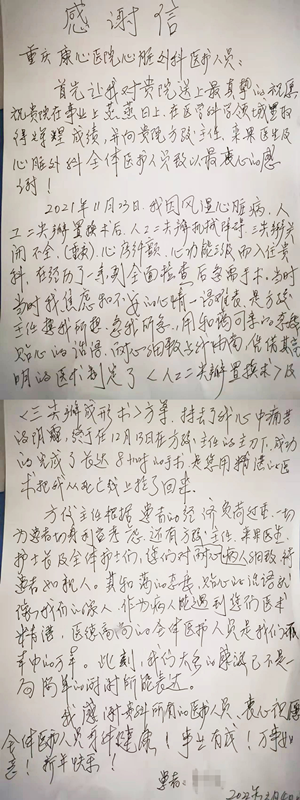 感谢信
重庆康心医院心脏外科医护人员:
首先让我对贵院送上最真挚的祝愿
祝贵院在事业上蒸蒸日上,在医学科学领域里取
得更辉煌成绩,并向贵院方致主任,来果医生及
心脏外科全体医护人员致以最衷心的感
谢!
2021年11月23日,我因风湿心脏病,人
工二尖瓣置换术后,人工二尖瓣机械障碍,三尖瓣关
闭不全,(重度),心房纤颤,心功能三级而入住贵
科,在经历了一系列全面检查后急需手术,当时
当时我焦虑和不安的心情一语难表,是方致
主任想我所想,急我所急,用和蔼可亲的态度
贴心的话语,
明的医术制定了《人工二尖瓣置换术》及
《三尖瓣成形术》方案,抹去了我心中痛苦
的阴霾,终于在12月13日在方致主任的主刀下,成功
的完成了长达8小时的手术,是您用精湛的医
术把我从死亡线上拉了回来.
方致主任根据患者的经济负荷过重,一切
为患者切身利益考虑,还有方致主任,来果医生,
护士长及全体护士们,您们对所以病人细致,待
患者如亲人。其和蔼的态度,贴心的话语就
像我们的家人,作为病人能遇到您们医术
精湛,医德高尚的全体医护人员是我们不
幸中的万幸。此刻,我们太多的感激已不是一
句简单的谢谢所能表达。
我感谢贵科所有的医护人员,衷心祝愿
全体医护人员身体健康!事业有成!万事如
意!新年快乐!
患者: